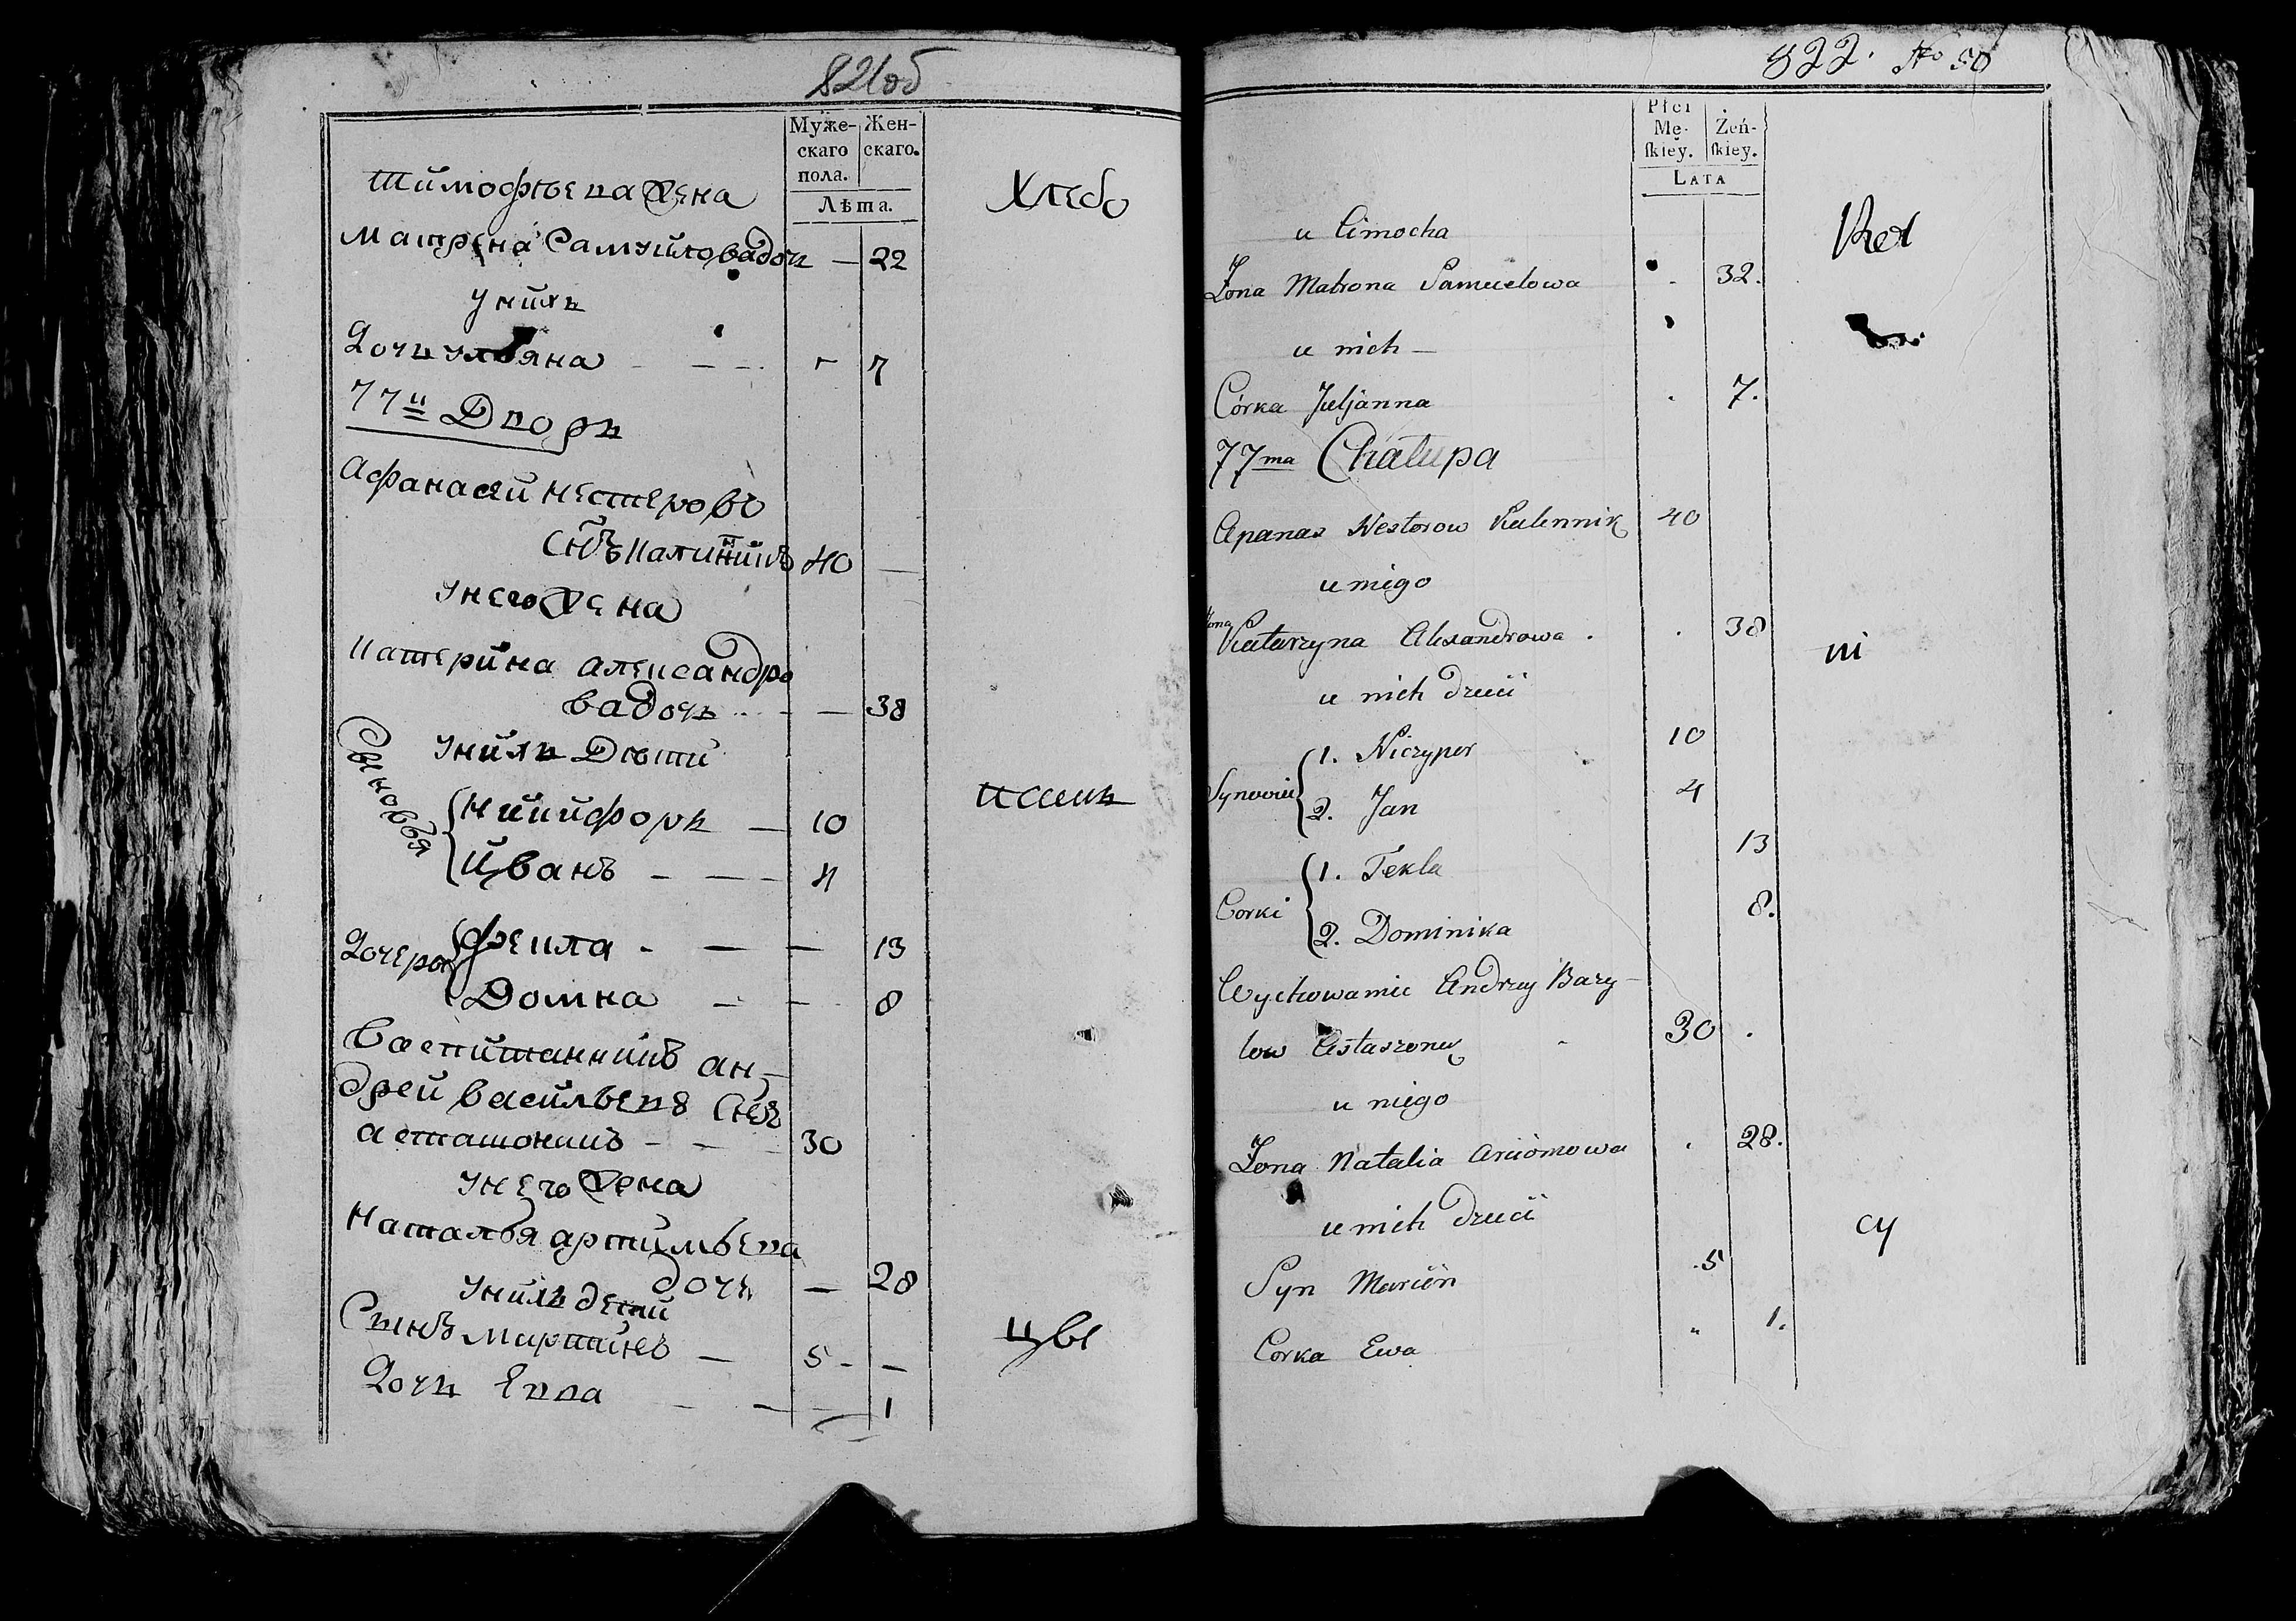 821об
Муже-
скаго
пола.
Жен-
скаго.
Лѣта.
Тимофѣева жена
Матрена Самуйлова дочь — 22
у нихъ
Дочь ульяна — 7
77й Дворъ
Афанасей нестеровъ
Снъ Калинникъ 40 —
у него жена
Катерина александро
ва дочь — 38
у нихъ Дѣти
Сыновья
Никифоръ — 10
Иванъ — 4
Дочеры
Фекла — 13
Домна — 8
Воспитанникъ ан-
дрей васильевъ Снъ
асташонокъ 30
у него жена
Наталья артимьева
дочь — 28
у нихъ дети
Сынъ мартинъ — 5 —
Дочь Евва — 1
Хлебо
пашц
цвы
822. No 50
Płci
Mę-
ſkiey.
Żeń-
ſkiey.
LATA
u Cimocha
Żona Matrona Samuelowa 32.
u nich —
Córka Juljanna 7.
77ma Chałupa
Apanas Nestorow Kalennik 40
u niego
Żona Katarzyna Alexandrowa 38
u nich dzieci
Synowie
1. Niczypor 10
2. Jan 4
Corki
1. Tekla 13
2. Dominika 8.
Wychowaniec Andrzey Bazy-
low Astaszonek 30
u niego
Żona Natalia Arciomowa 28.
u nich dzieci
Syn Marcin 5
Corka Ewa 1.
ni
cy